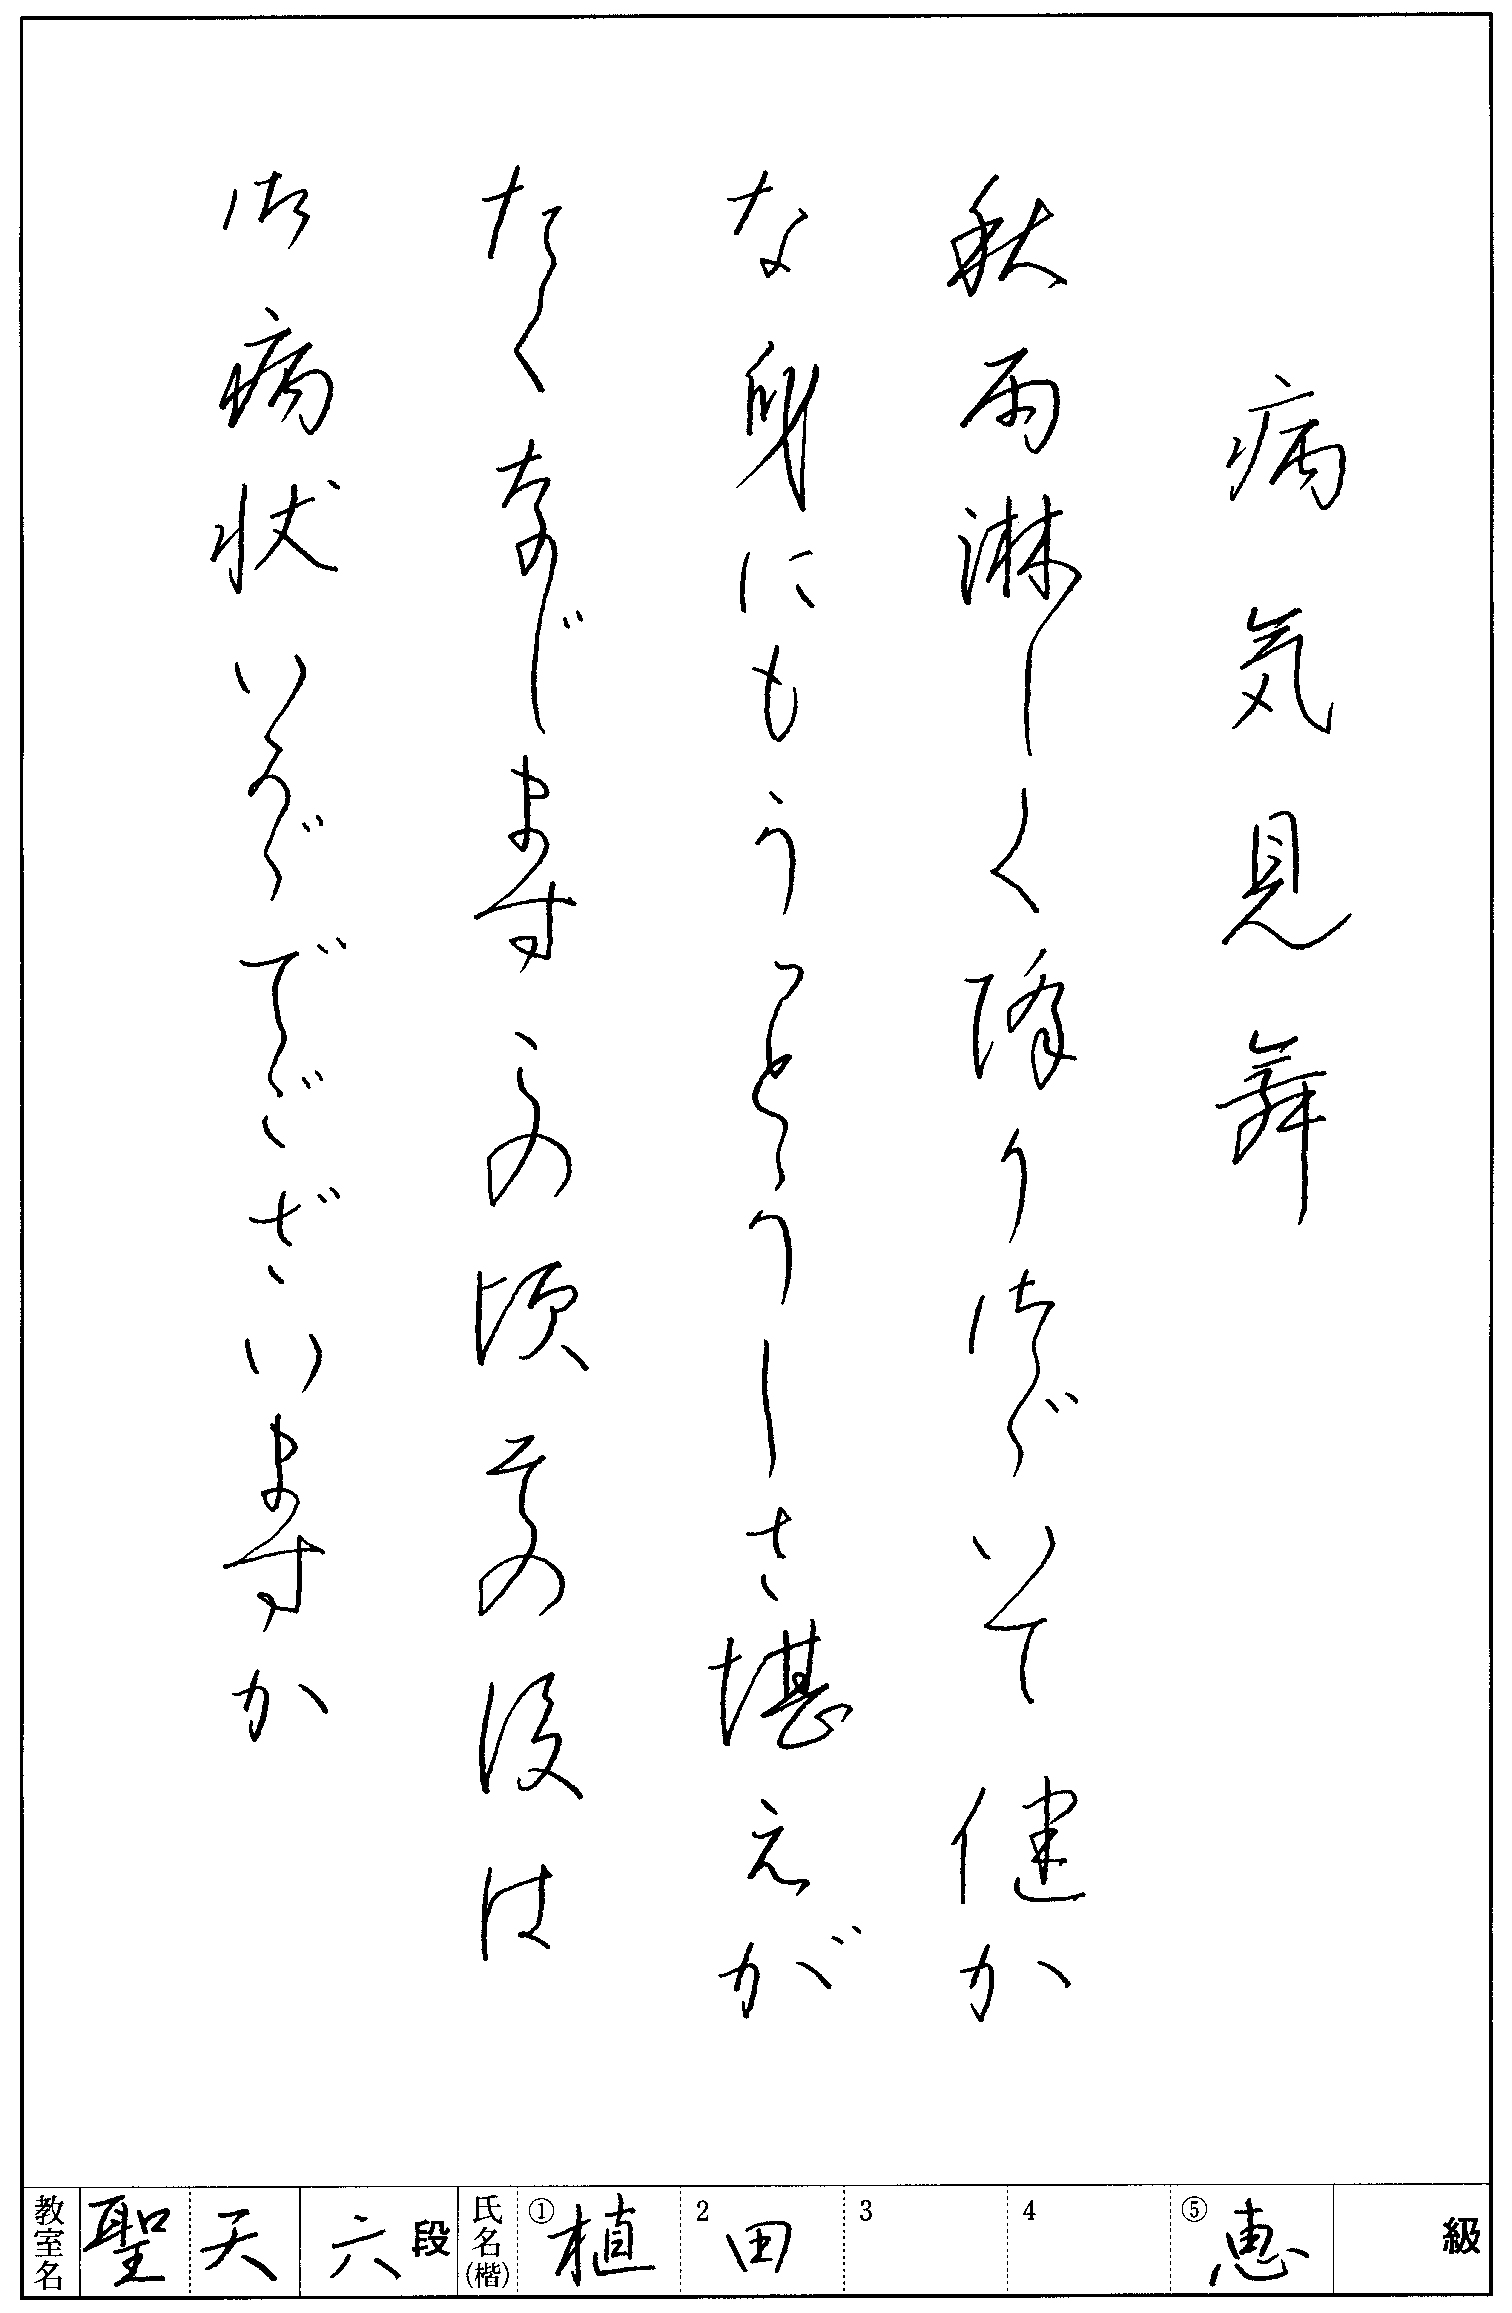 病気見舞
秋雨淋しく降りつづいて健か
な身にもうっとうしさ堪えが
たくなじます この頃その後は
御病状いかゞでございますか
教室名 聖天 六段 氏名(楷) ① 植 2 田 3 4 ⑤ 恵 級